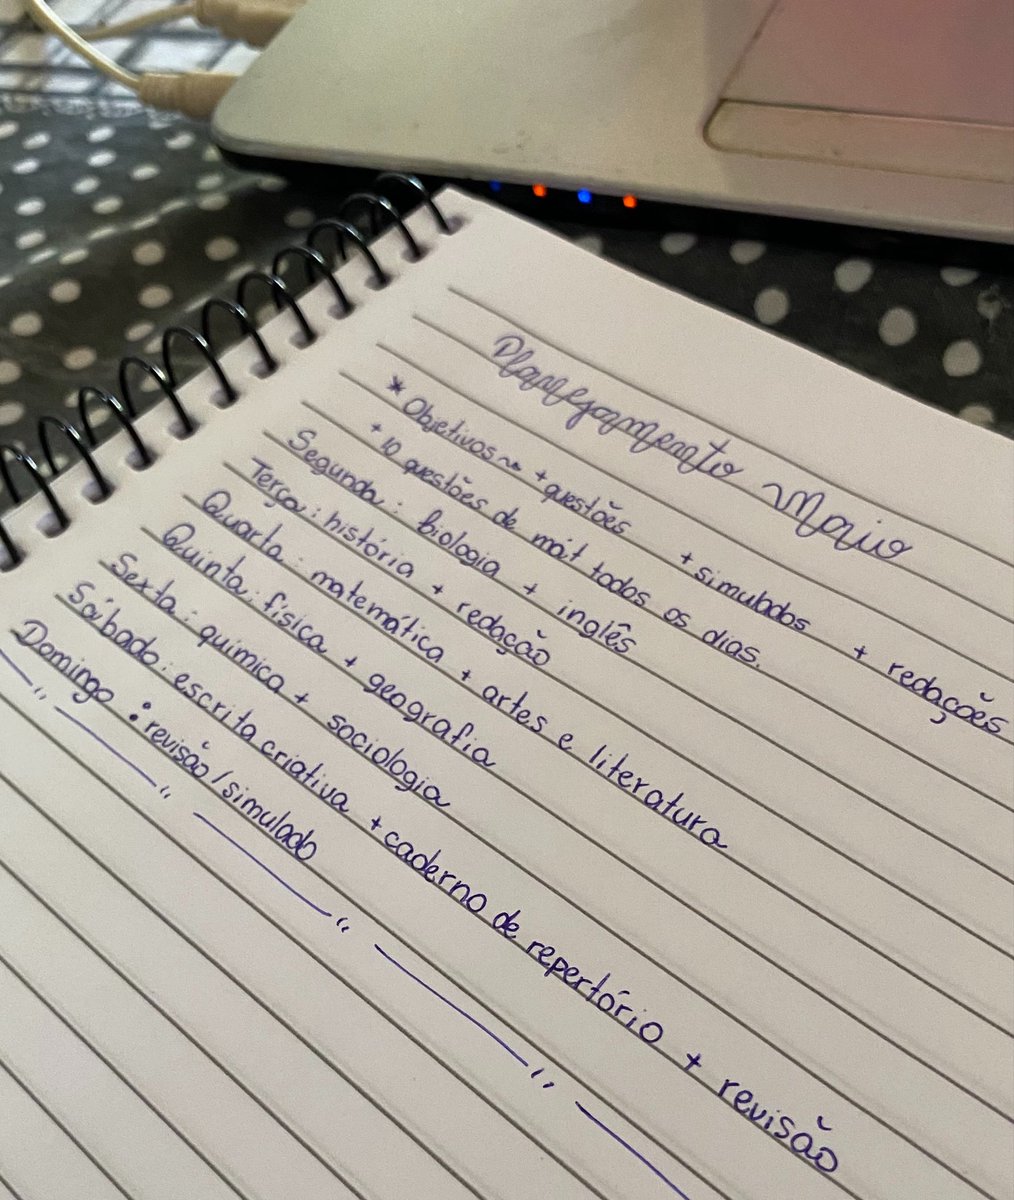 Planejamento Maio
* Objetivos ~ + questões + simulados + redações
+ 10 questões de mát todos os dias.
Segunda: biologia + inglês
Terça: história + redação
Quarta: matemática + artes e literatura
Quinta: física + geografia
Sexta: química + sociologia
Sábado: escrita criativa + caderno de repertório + revisão
Domingo: revisão/simulado